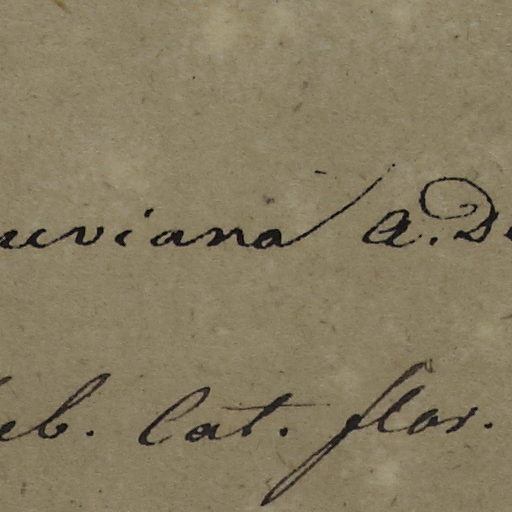 uviana A. D
eb. Cat. flor.